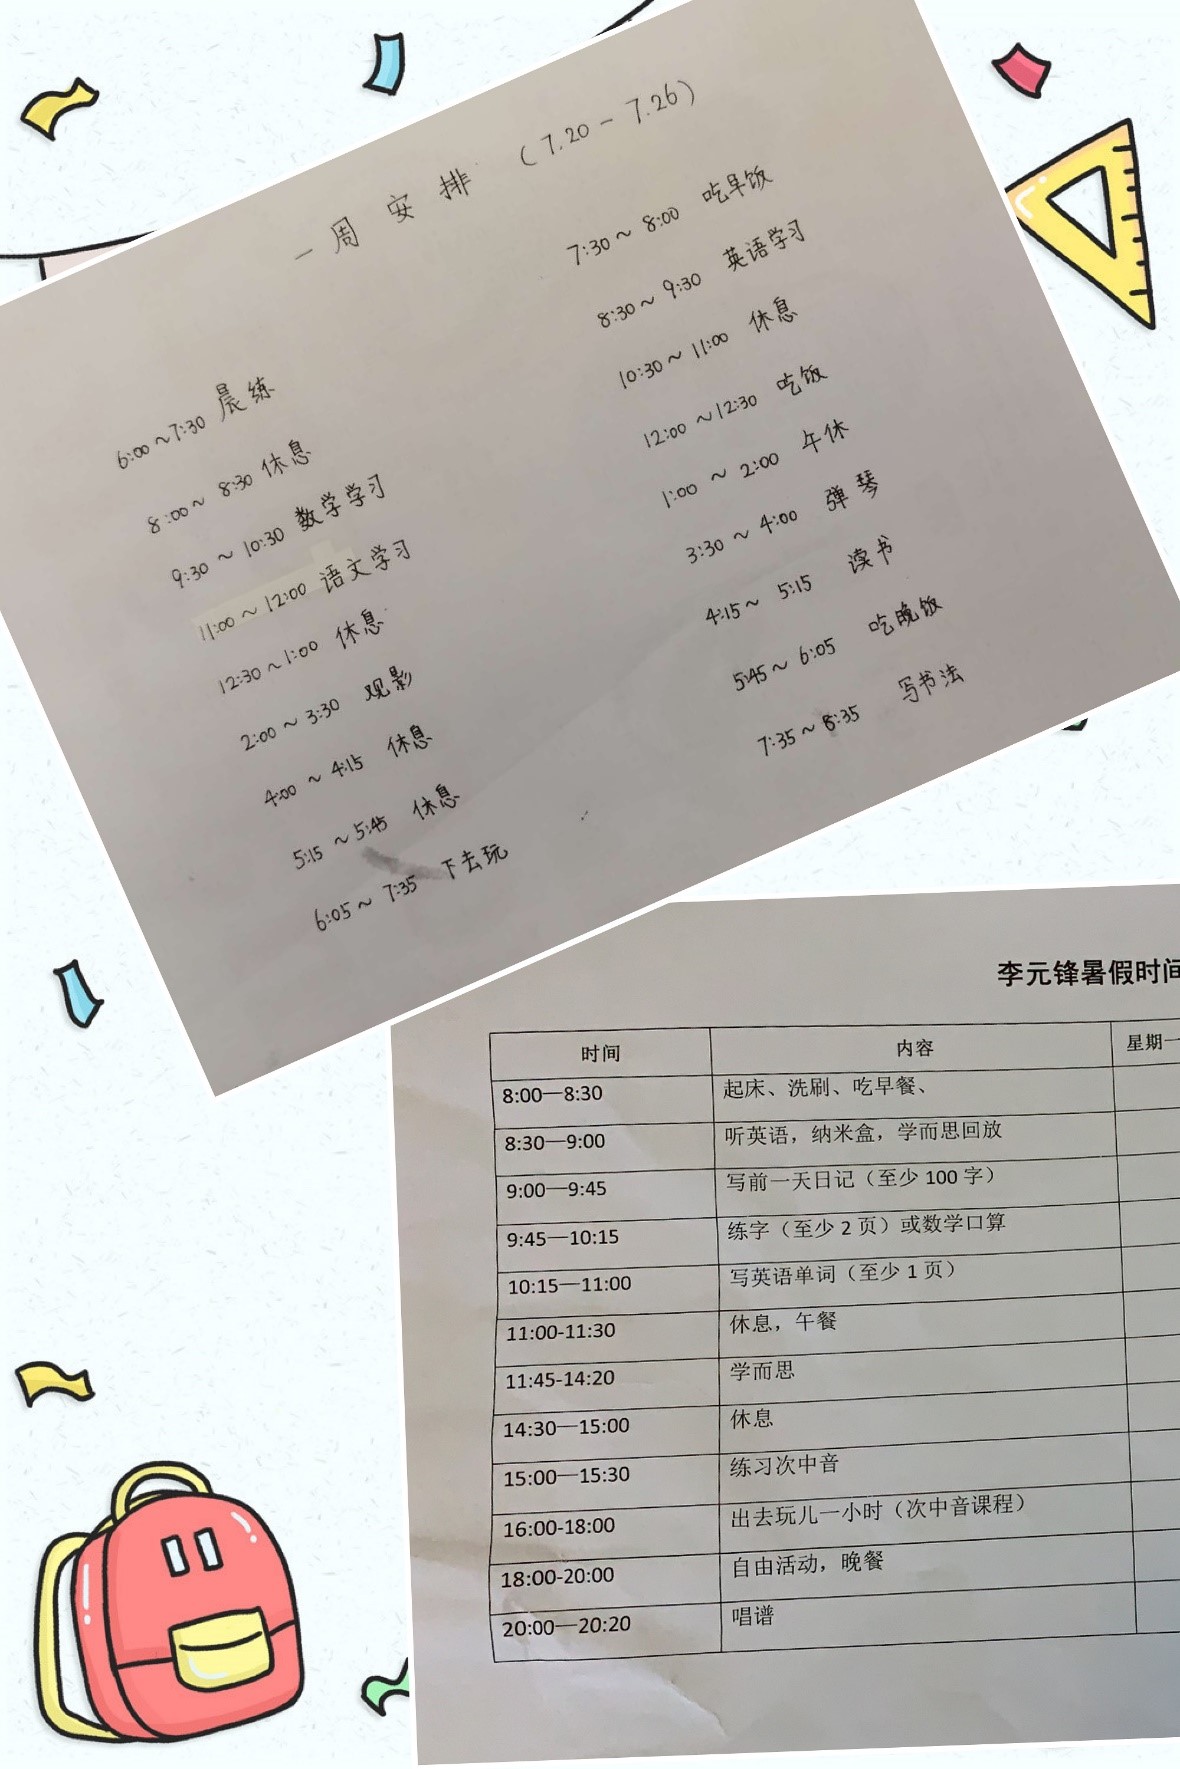 一周安排 (7.20 - 7.26)
6:00~7:30 晨练
7:30~8:00 吃早饭
8:00~8:30 休息
8:30~9:30 英语学习
9:30~10:30 数学学习
10:30~11:00 休息
11:00~12:00 语文学习
12:00~12:30 吃饭
12:30~1:00 休息
1:00~2:00 午休
2:00~3:30 观影
3:30~4:00 弹琴
4:00~4:15 休息
4:15~5:15 读书
5:15~5:45 休息
5:45~6:05 吃晚饭
6:05~7:35 下去玩
7:35~8:35 写书法
李元锋暑假时间
时间 内容 星期一
8:00—8:30 起床、洗刷、吃早餐、
8:30—9:00 听英语，纳米盒，学而思回放
9:00—9:45 写前一天日记（至少 100 字）
9:45—10:15 练字（至少 2 页）或数学口算
10:15—11:00 写英语单词（至少 1 页）
11:00-11:30 休息，午餐
11:45-14:20 学而思
14:30—15:00 休息
15:00—15:30 练习次中音
16:00-18:00 出去玩儿一小时（次中音课程）
18:00-20:00 自由活动，晚餐
20:00—20:20 唱谱